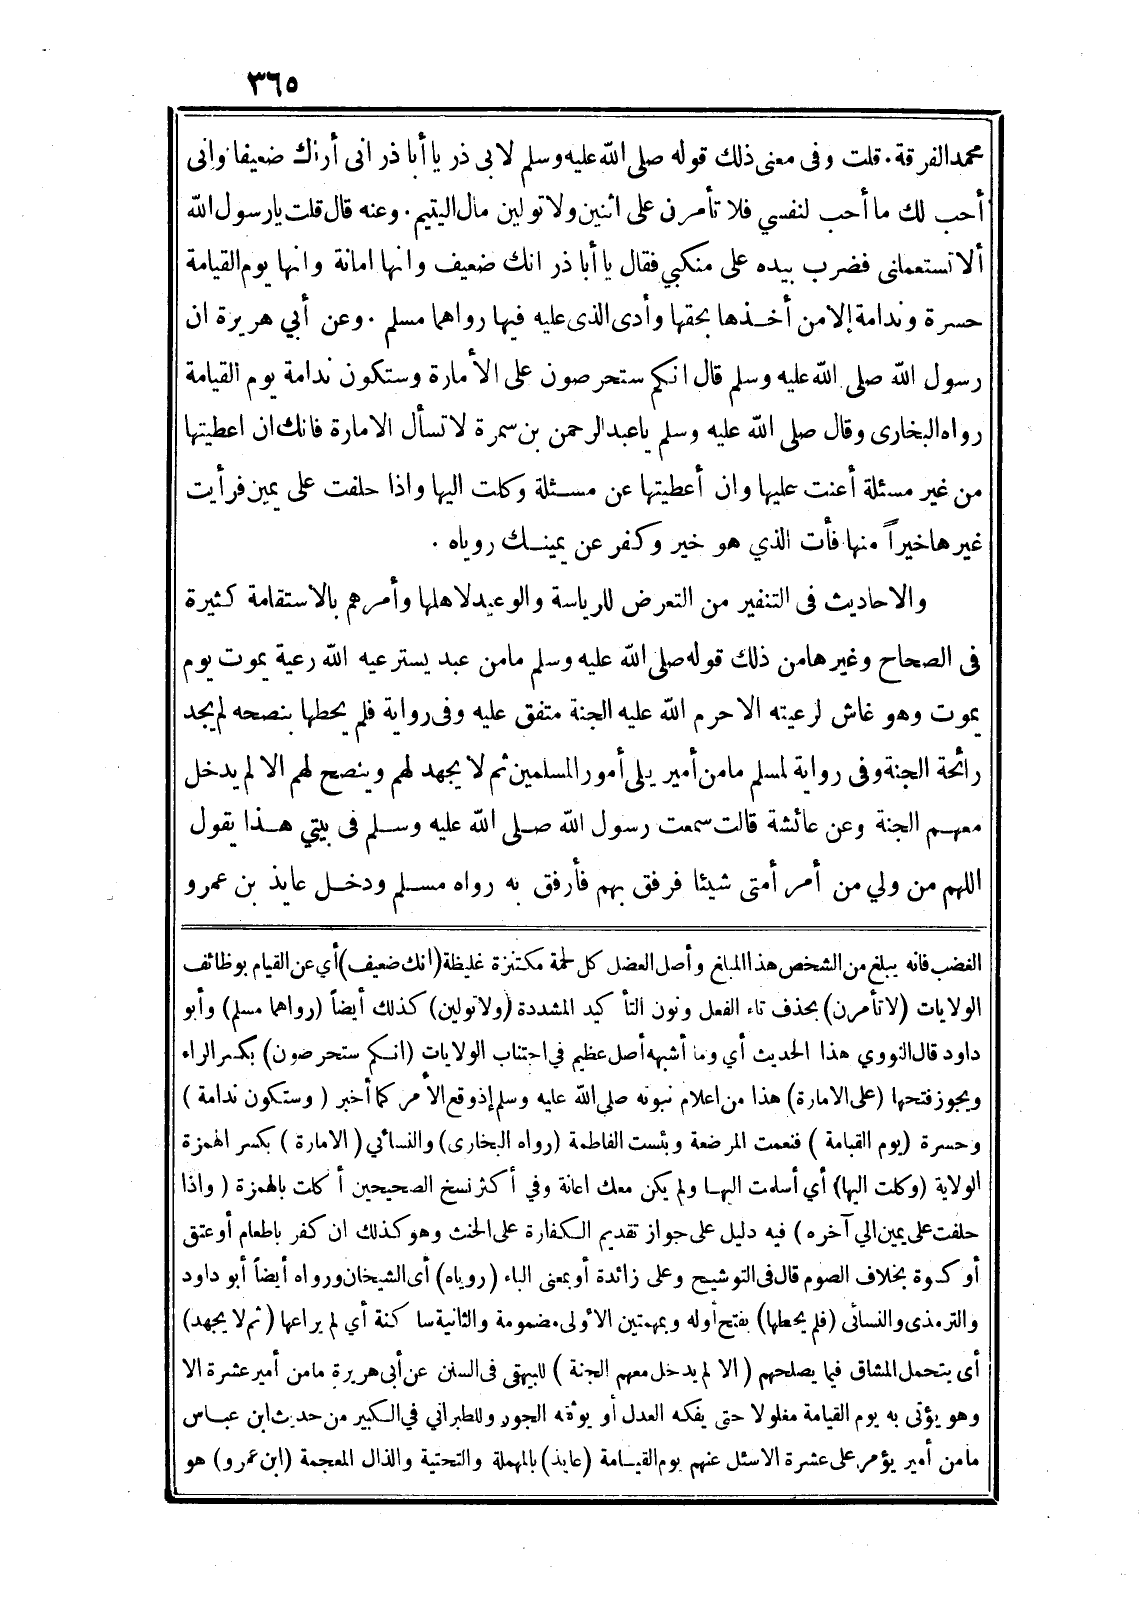 ٣٦٥
محمد الفرقة. قلت وفى معنى ذلك قوله صلى الله عليه وسلم لابى ذر يا أبا ذر انى أراك ضعيفا وانى
أحب لك ما أحب لنفسي فلا تأمرن على اثنين ولا تولين مال اليتيم. وعنه قال قلت يارسول الله
ألا تستعملنى فضرب بيده على منكبي فقال يا أبا ذر انك ضعيف وانها امانة وانها يوم القيامة
حسرة وندامة إلا من أخذها بحقها وأدى الذى عليه فيها رواهما مسلم. وعن أبي هريرة ان
رسول الله صلى الله عليه وسلم قال انكم ستحرصون على الأمارة وستكون ندامة يوم القيامة
رواه البخارى وقال صلى الله عليه وسلم ياعبد الرحمن بن سمرة لا تسأل الامارة فانك ان اعطيتها
من غير مسئلة أعنت عليها وان أعطيتها عن مسئلة وكلت اليها واذا حلفت على يمين فرأيت
غيرها خيراً منها فأت الذي هو خير وكفر عن يمينك روياه .
والاحاديث فى التنفير من التعرض للرياسة والوعيد لاهلها وأمرهم بالاستقامة كثيرة
فى الصحاح وغيرها من ذلك قوله صلى الله عليه وسلم مامن عبد يسترعيه الله رعية يموت يوم
يموت وهو غاش لرعيته الا حرم الله عليه الجنة متفق عليه وفى رواية فلم يحطها بنصحه لم يجد
رائحة الجنة وفى رواية لمسلم مامن أمير يلى أمور المسلمين ثم لا يجهد لهم وينصح لهم الا لم يدخل
معهم الجنة وعن عائشة قالت سمعت رسول الله صلى الله عليه وسلم فى بيتي هذا يقول
اللهم من ولي من أمر أمتى شيئا فرفق بهم فأرفق به رواه مسلم ودخل عايذ بن عمرو
الغضب فانه يبلغ من الشخص هذا المبلغ وأصل العضل كل لحمة مكتنزة غليظة (انك ضعيف) أي عن القيام بوظائف
الولايات (لا تأمرن) بحذف تاء الفعل ونون التأكيد المشددة (ولا تولين) كذلك أيضاً (رواهما مسلم) وأبو
داود قال النووي هذا الحديث أي وما أشبهه أصل عظيم في اجتناب الولايات (انكم ستحرصون) بكسر الراء
ويجوز فتحها (على الامارة) هذا من اعلام نبوته صلى الله عليه وسلم إذ وقع الأمر كما أخبر (وستكون ندامة)
وحسرة (يوم القيامة) فنعمت المرضعة وبئست الفاطمة (رواه البخارى) والنسائي (الامارة) بكسر الهمزة
الولاية (وكلت اليها) أي أسلمت اليها ولم يكن معك اعانة وفي أكثر نسخ الصحيحين أكلت بالهمزة (واذا
حلفت على يمين الي آخره) فيه دليل على جواز تقديم الكفارة على الحنث وهو كذلك ان كفر باطعام أو عتق
أو كسوة بخلاف الصوم قال فى التوشيح وعلى زائدة أو بمعنى الباء (روياه) أى الشيخان ورواه أيضاً أبو داود
والترمذى والنسائى (فلم يحطها) بفتح أوله وبمهمتين الأولى مضمومة والثانية ساكنة أي لم يراعها (ثم لا يجهد)
أى يتحمل المشاق فيما يصلحهم (الا لم يدخل معهم الجنة) للبيهقى فى السنن عن أبى هريرة مامن أمير عشرة الا
وهو يؤتى به يوم القيامة مغلولا حتى يفكه العدل أو يوثقه الجور وللطبراني في الكبير من حديث ابن عباس
مامن أمير يؤمر على عشرة الاسئل عنهم يوم القيامة (عايذ) بالمهملة والتحتية والذال المعجمة (ابن عمرو) هو